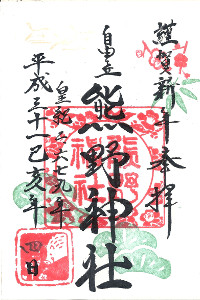 謹賀新年奉拝
熊野神社
皇紀二六七九年
平成三十一己亥年
四日